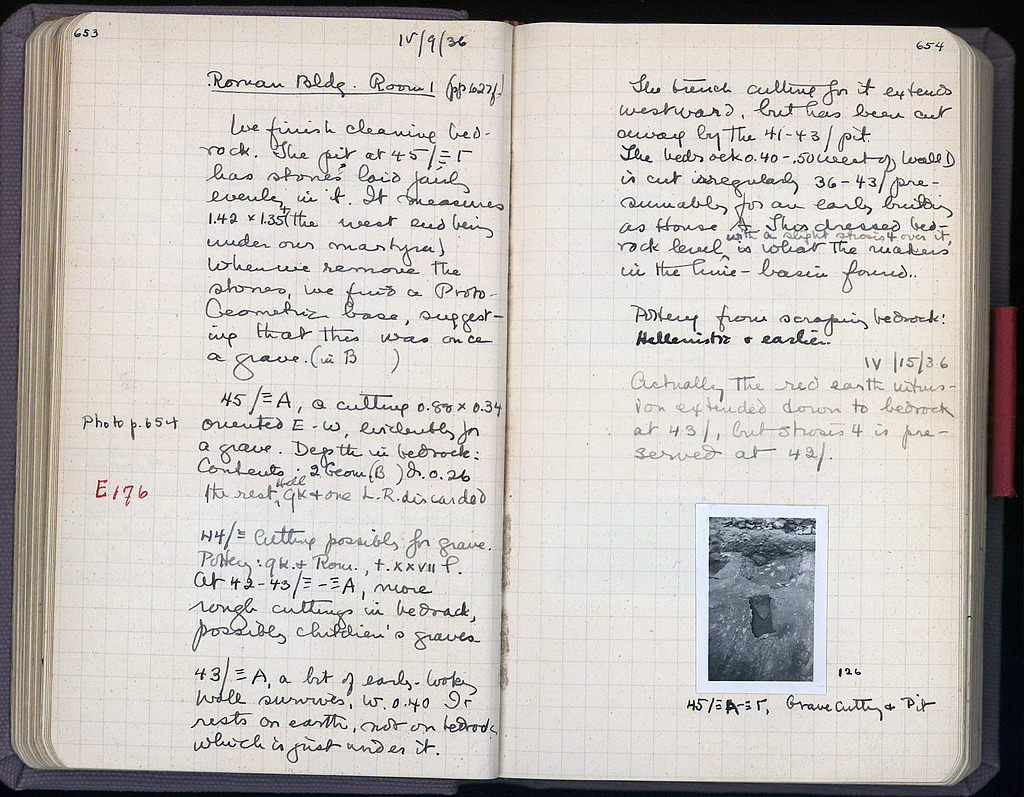 653
IV/9/36
Roman Bldg. Room 1 (pp 627f.)
We finish cleaning bed-
rock. The pit at 45/ΞΓ
has stones laid fairly
evenly in it. It measures
1.42 x 1.35 (the west end being
under our martyra)
When we remove the
stones, we find a Proto-
Geometric base, suggest-
ing that this was once
a grave. (in B )
45/ΞA, a cutting 0.80 x 0.34
Photo p. 654
oriented E-W, evidently for
a grave. Depth in bedrock:
Contents: 2 Geom. (B ) 0.26
E 176
the rest, Hell
gk + one L.R. discarded
44/Ξ Cutting possibly for grave.
Pottery: gk. + Rom., t. XXVII f.
At 42-43/Ξ-ΞA, more
rough cuttings in bedrock,
possibly children's graves
43/ΞA, a bit of early-looking
wall survives, W. 0.40 It
rests on earth, not on bedrock
which is just under it.
654
The trench cutting for it extends
westward, but has been cut
away by the 41-43/ pit.
The bedrock 0.40-.50 west of Wall D
is cut irregularly 36-43/ pre-
sumably for an early building
as House A. This dressed bed-
with a slight strosis 4 over it,
rock level is what the makers
in the lime-basin found..
Pottery from scraping bedrock:
Hellenistic & earlier.
IV/15/36
Actually the red earth intru-
sion extended down to bedrock
at 43/, but strosis 4 is pre-
served at 42/.
126
45/ΞA-ΞΓ, Grave Cutting & Pit